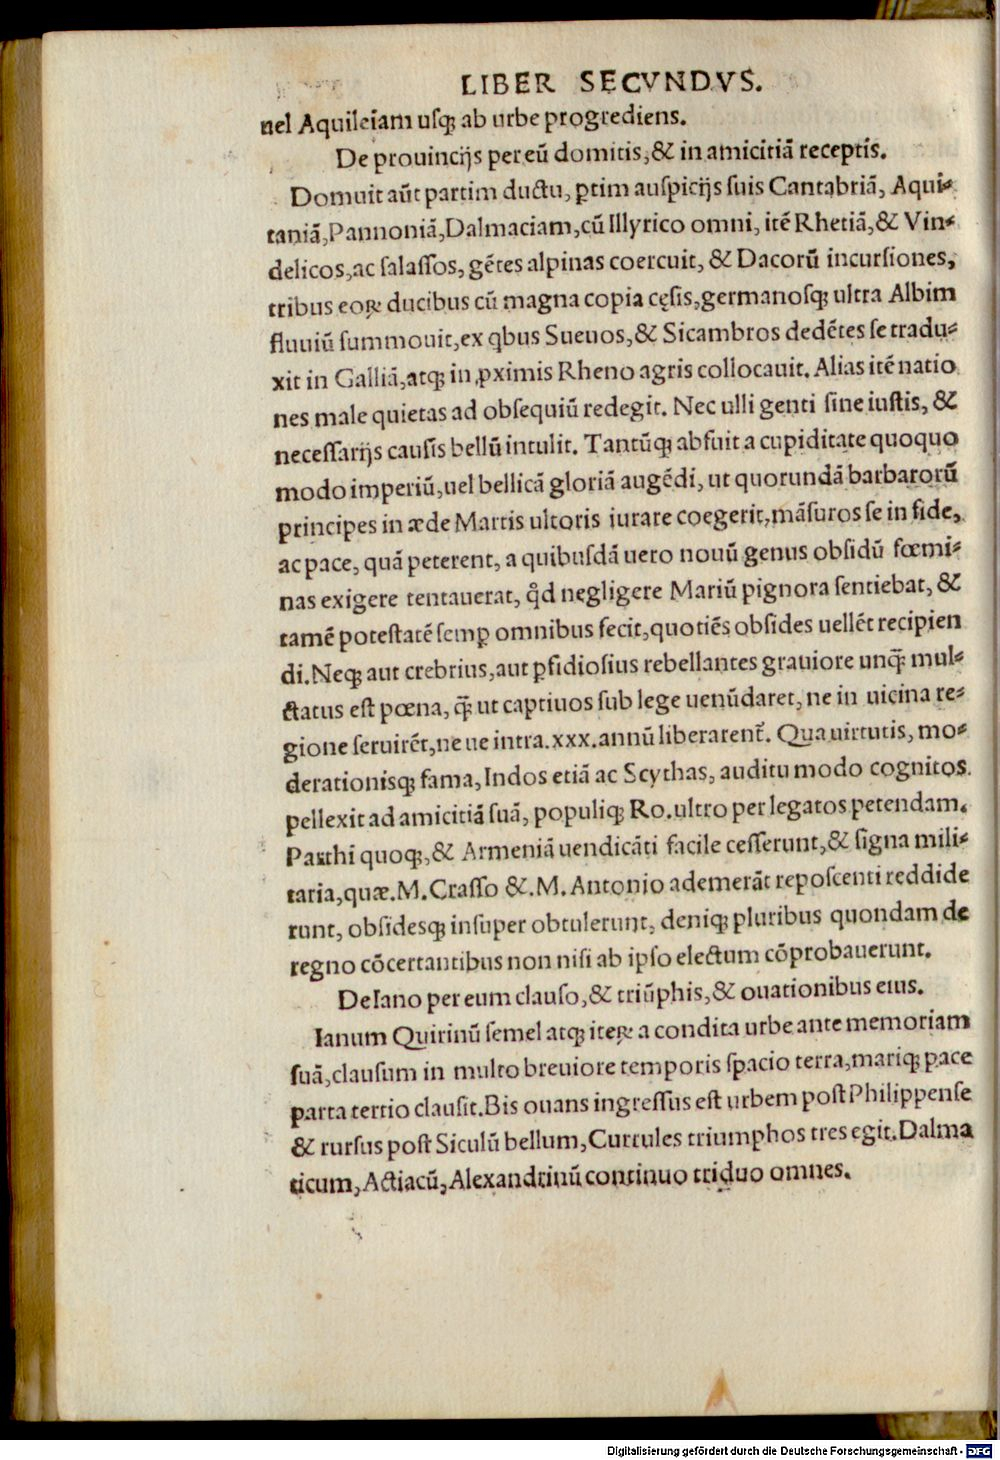 LIBER SECVNDVS.
uel Aquileiam uſqꝫ ab urbe progrediens.
De prouincijs per eū domitis,& in amicitiā receptis.
Domuit aūt partim ductu, ꝑtim auſpicijs ſuis Cantabriā, Aqui⸗
taniā,Pannoniā,Dalmaciam,cū Illyrico omni, itē Rhetiā,& Vin⸗
delicos,ac ſalaſſos, gētes alpinas coercuit, & Dacorū incurſiones,
tribus eoꝝ ducibus cū magna copia cęſis,germanoſqꝫ ultra Albim
fluuiū ſummouit,ex qbus Sueuos,& Sicambros dedētes ſe tradu⸗
xit in Galliā,atqꝫ in ꝓximis Rheno agris collocauit. Alias itē natio
nes male quietas ad obſequiū redegit. Nec ulli genti ſine iuſtis, &
neceſſarijs cauſis bellū intulit. Tantūqꝫ abfuit a cupiditate quoquo
modo imperiū,uel bellicā gloriā augēdi, ut quorundā barbarorū
principes in æde Martis ultoris iurare coegerit,māſuros ſe in fide,
ac pace, quā peterent, a quibuſdā uero nouū genus obſidū fœmi⸗
nas exigere tentauerat, qd̓ negligere Mariū pignora ſentiebat, &
tamē poteſtatē ſemꝑ omnibus fecit,quotiēs obſides uellēt recipien
di.Neqꝫ aut crebrius,aut ꝑfidioſius rebellantes grauiore unq̄ mul⸗
ctatus eſt pœna, q̄ ut captiuos ſub lege uenūdaret, ne in uicina re⸗
gione ſeruirēt,ne ue intra.xxx.annū liberarent᷑. Qua uirtutis, mo⸗
derationisqꝫ fama,Indos etiā ac Scythas, auditu modo cognitos.
pellexit ad amicitiā ſuā, populiqꝫ Ro.ultro per legatos petendam.
Parthi quoqꝫ,& Armeniā uendicāti facile ceſſerunt,& ſigna mili⸗
taria,quæ.M.Craſſo &.M.Antonio ademerāt repoſcenti reddide
runt, obſidesqꝫ inſuper obtulerunt, deniqꝫ pluribus quondam de
regno cōcertantibus non niſi ab ipſo electum cōprobauerunt.
De Iano per eum clauſo,& triūphis,& ouationibus eius.
Ianum Quirinū ſemel atqꝫ iteꝝ a condita urbe ante memoriam
ſuā,clauſum in multo breuiore temporis ſpacio terra,mariqꝫ pace
parta tertio clauſit.Bis ouans ingreſſus eſt urbem poſt Philippenſe
& rurſus poſt Siculū bellum,Currules triumphos tres egit.Dalma
ticum,Actiacū,Alexandrinū continuo triduo omnes.
Digitalisierung gefördert durch die Deutsche Forschungsgemeinschaft - DFG